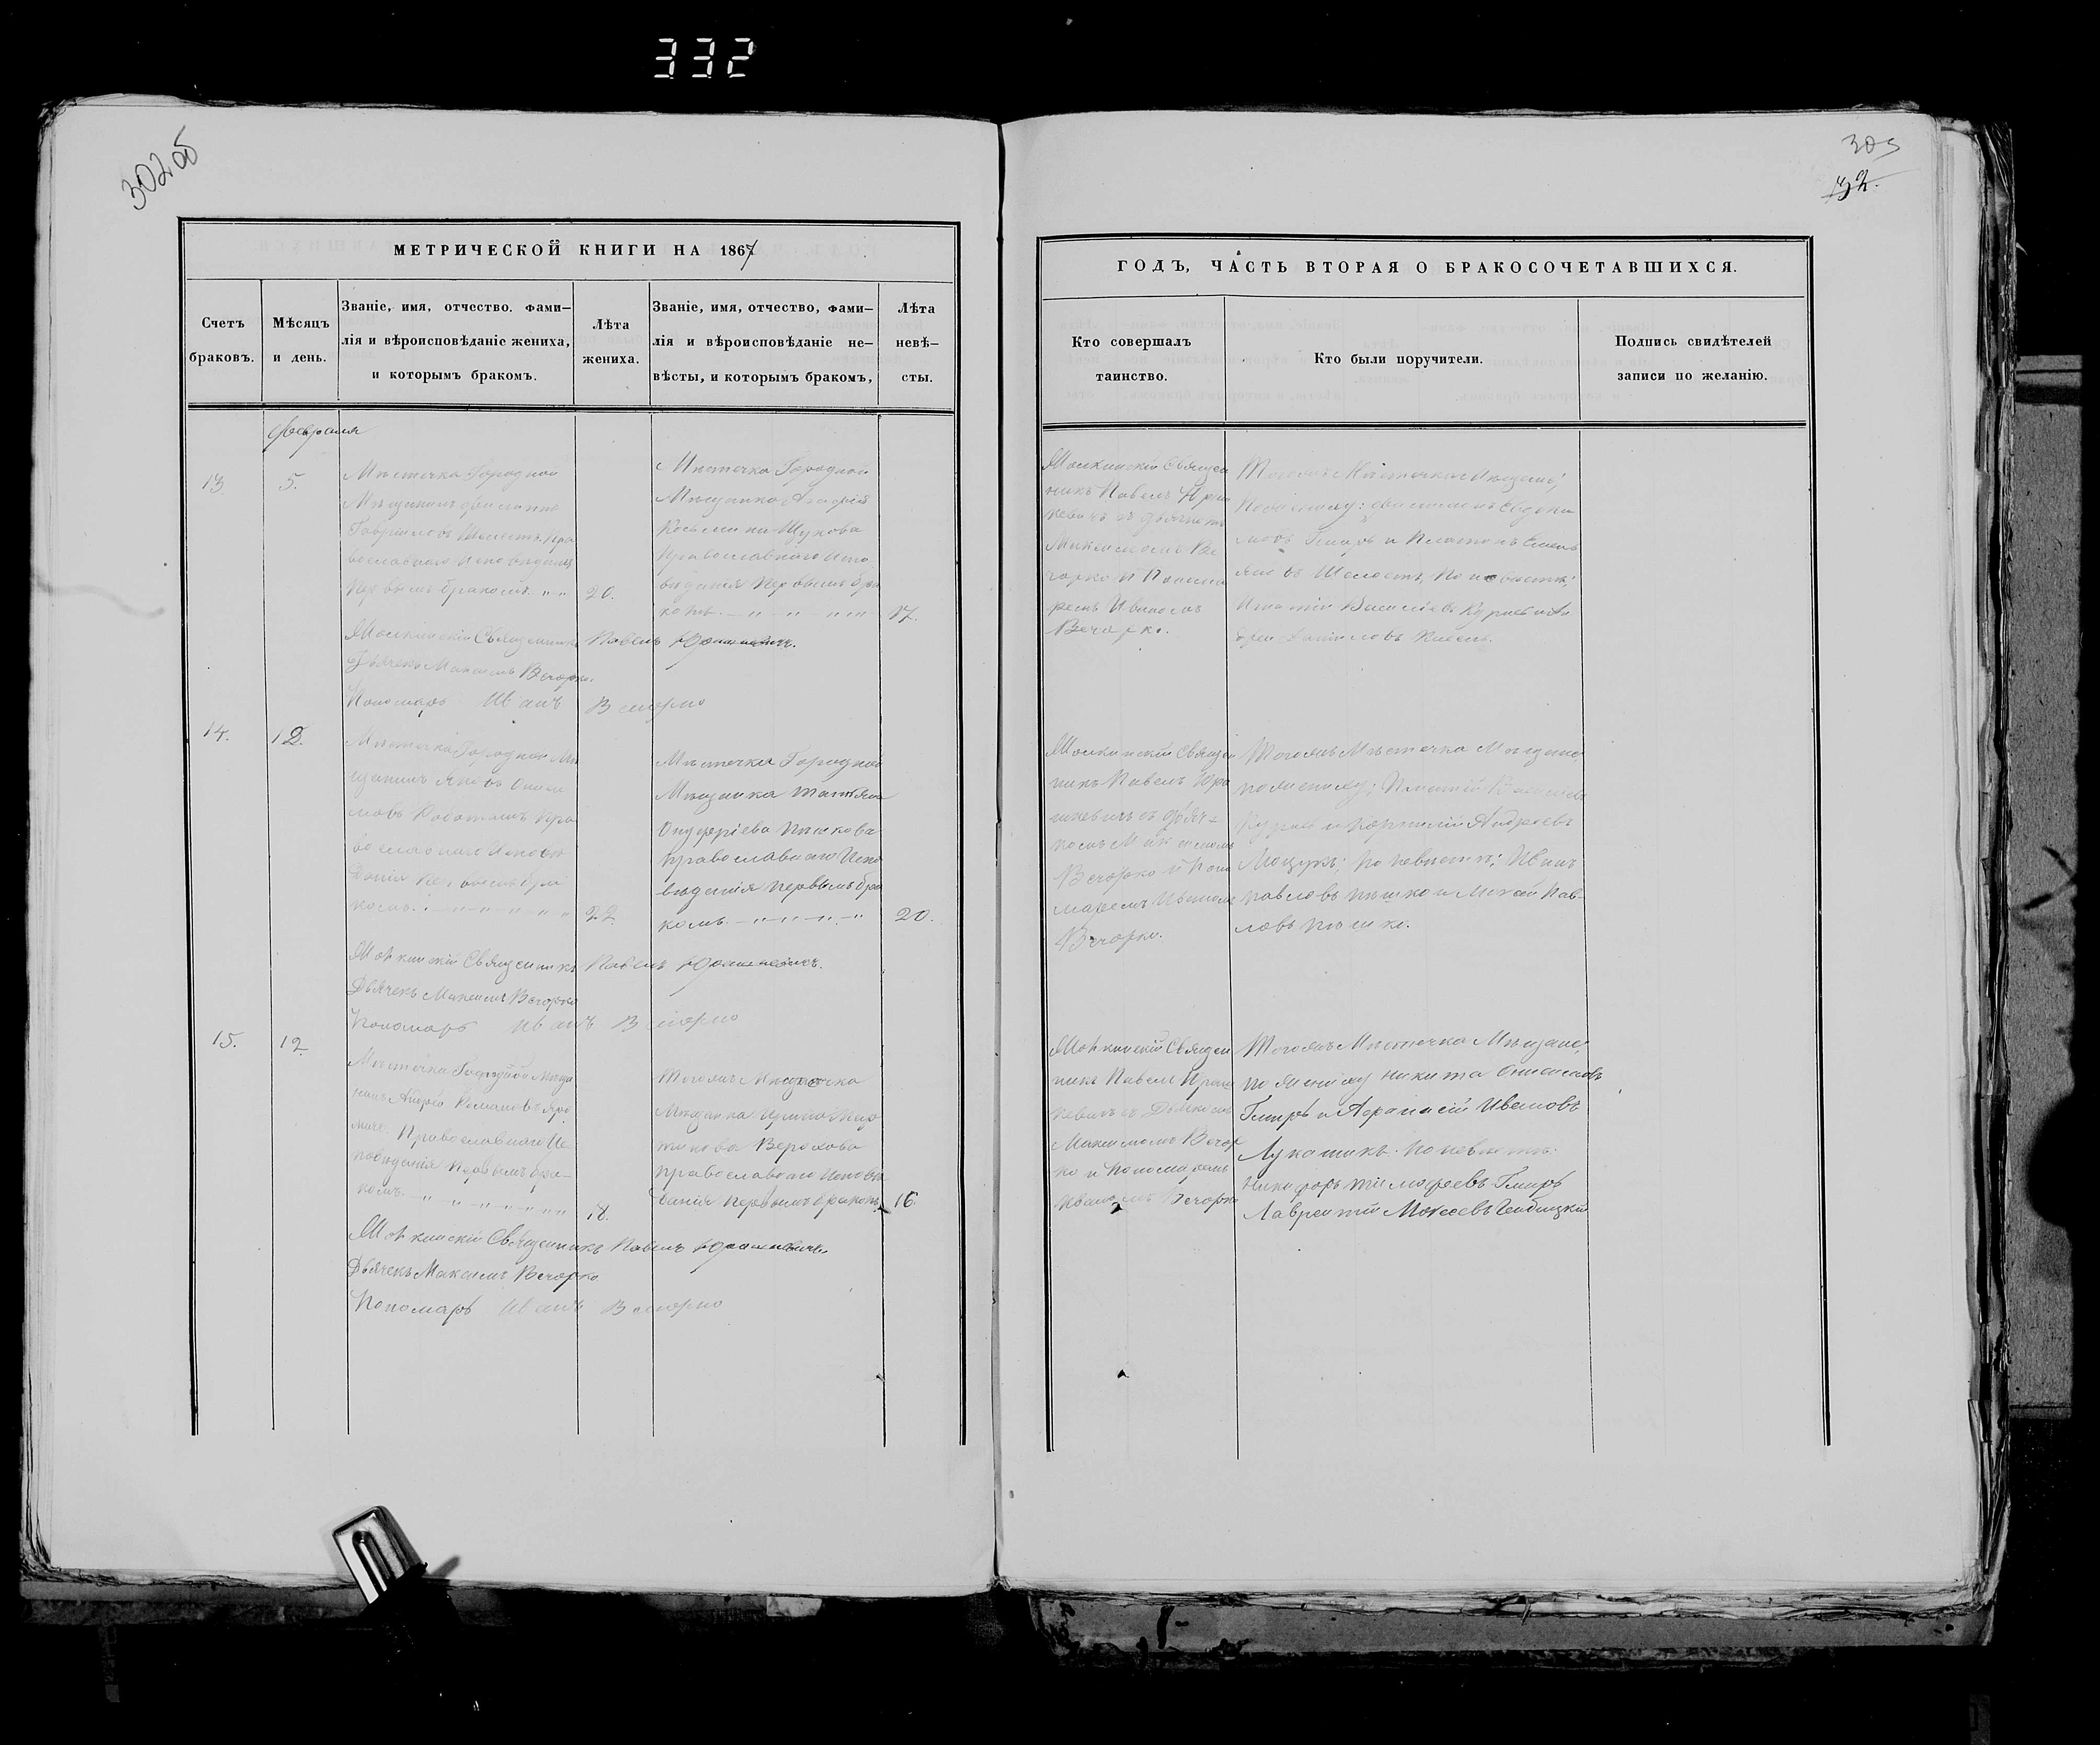 332
302об
303
32.
МЕТРИЧЕСКОЙ КНИГИ НА 1867
Счетъ браковъ.
Мѣсяцъ и день.
Званіе, имя, отчество. фами-
лія и вѣроисповѣданіе жениха,
и которымъ бракомъ.
Лѣта жениха.
Званіе, имя, отчество, фами-
лія и вѣроисповѣданіе не-
вѣсты, и которымъ бракомъ,
Лѣта невѣ-
сты.
Февраля
13
5.
Мѣстечка Городной
Мѣщанинъ
Гавріиловъ Шелестъ, Пра
вославнаго Исповѣданія
Первымъ бракомъ. „ „
20.
Мѣстечка Городной
Мѣщанка Агафія
Косьмина Щукова
Православнаго Испо
вѣданія Первымъ бра
комъ. — „ „ „ „
17.
Священникъ Павелъ Юрашкевичъ.
Дьячекъ Максимъ Вечорко.
Пономарь Иванъ Вечорко
14.
12.
Мѣстечка Городной Мѣ
щанинъ Яковъ Ониси
мовъ Правo
славнаго Исповѣ
данія Первымъ бра
комъ. — „ „ „ „
22
Мѣстечка Городной
Мѣщанка Татіяна
Онуфріева Пѣшкова
православнаго Испо
вѣданія первымъ бра
комъ. — „ „ „ —„
20.
Священникъ Павелъ Юрашкевичъ.
Дьячекъ Максимъ Вечорко
Пономарь Иванъ Вечорко
15.
12.
Мѣстечка Городной Мѣща
нинъ Андрей Романовъ
Православнаго Ис
повѣданія Первымъ бра-
комъ. — „ „ „ „
18.
Тогожъ Мѣстечка
Мѣщанка
Верохова
православнаго Исповѣ
данія первымъ бракомъ.
16.
Священникъ Павелъ Юрашкевичъ
Дьячекъ Максимъ Вечорко
Пономарь Иванъ Вечорко
ГОДЪ, ЧАСТЬ ВТОРАЯ О БРАКОСОЧЕТАВШИХСЯ.
Кто совершалъ
таинство.
Кто были поручители.
Подпись свидѣтелей
записи по желанію.
Священ
никъ Павелъ Юраш
кевичъ съ дьячкомъ
Максимомъ Ве
чорко и Понома
ремъ Иваномъ
Вечорко.
Тогожъ Мѣстечка Мѣщане,
По жениху: Евдоки
мовъ Гмиръ и Платонъ Емель
яновъ Шелестъ, По невѣстѣ:
Игнатій Васильевъ Курисъ и Ан
дрей Даниловъ
Священ
никъ Павелъ Юра
шкевичъ съ Дьяч-
комъ Максимомъ
Вечорко и Поно
маремъ Иваномъ
Вечорко.
Тогожъ Мѣстечка Мѣщане,
по жениху: Игнатій Васильевъ
Курисъ и Корнилій Андреевъ
Мощукъ; по невѣстѣ: Иванъ
Павловъ Пѣшко и Моисей Пав-
ловъ Пѣшко.
Священ
никъ Павелъ Юраш
кевичъ съ Дьячкомъ
Максимомъ Вечор
ко и Пономаремъ
Иваномъ Вечорко
Тогожъ Мѣстечка Мѣщане,
по жениху Никита Онисимовъ
Гмиръ и Афанасій Ивановъ
Лукашикъ. По невѣстѣ:
Никифоръ Тимофеевъ Гмиръ
Лаврентій Моисеевъ